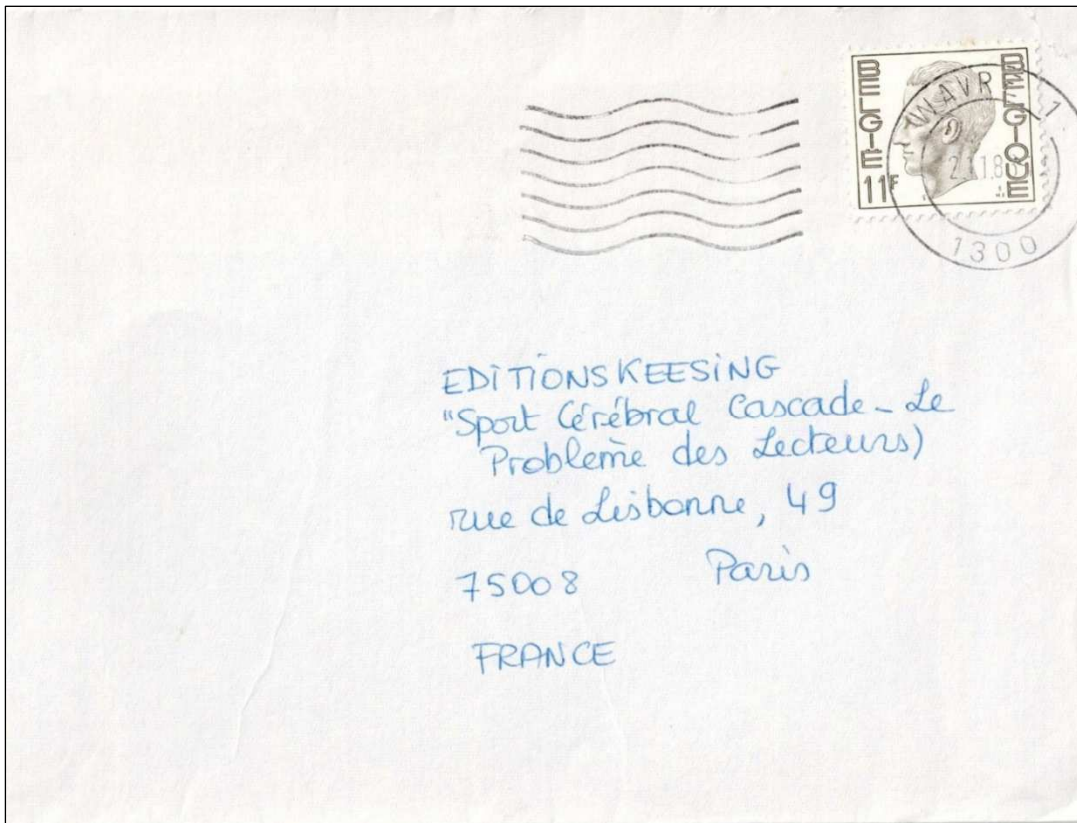 BELGIE
BELGIQUE
11F
WAVR 1
1300
EDITIONS KEESING
"Sport Cérébral Cascade - Le
Problème des Lecteurs)
rue de Lisbonne, 49
75008 Paris
FRANCE